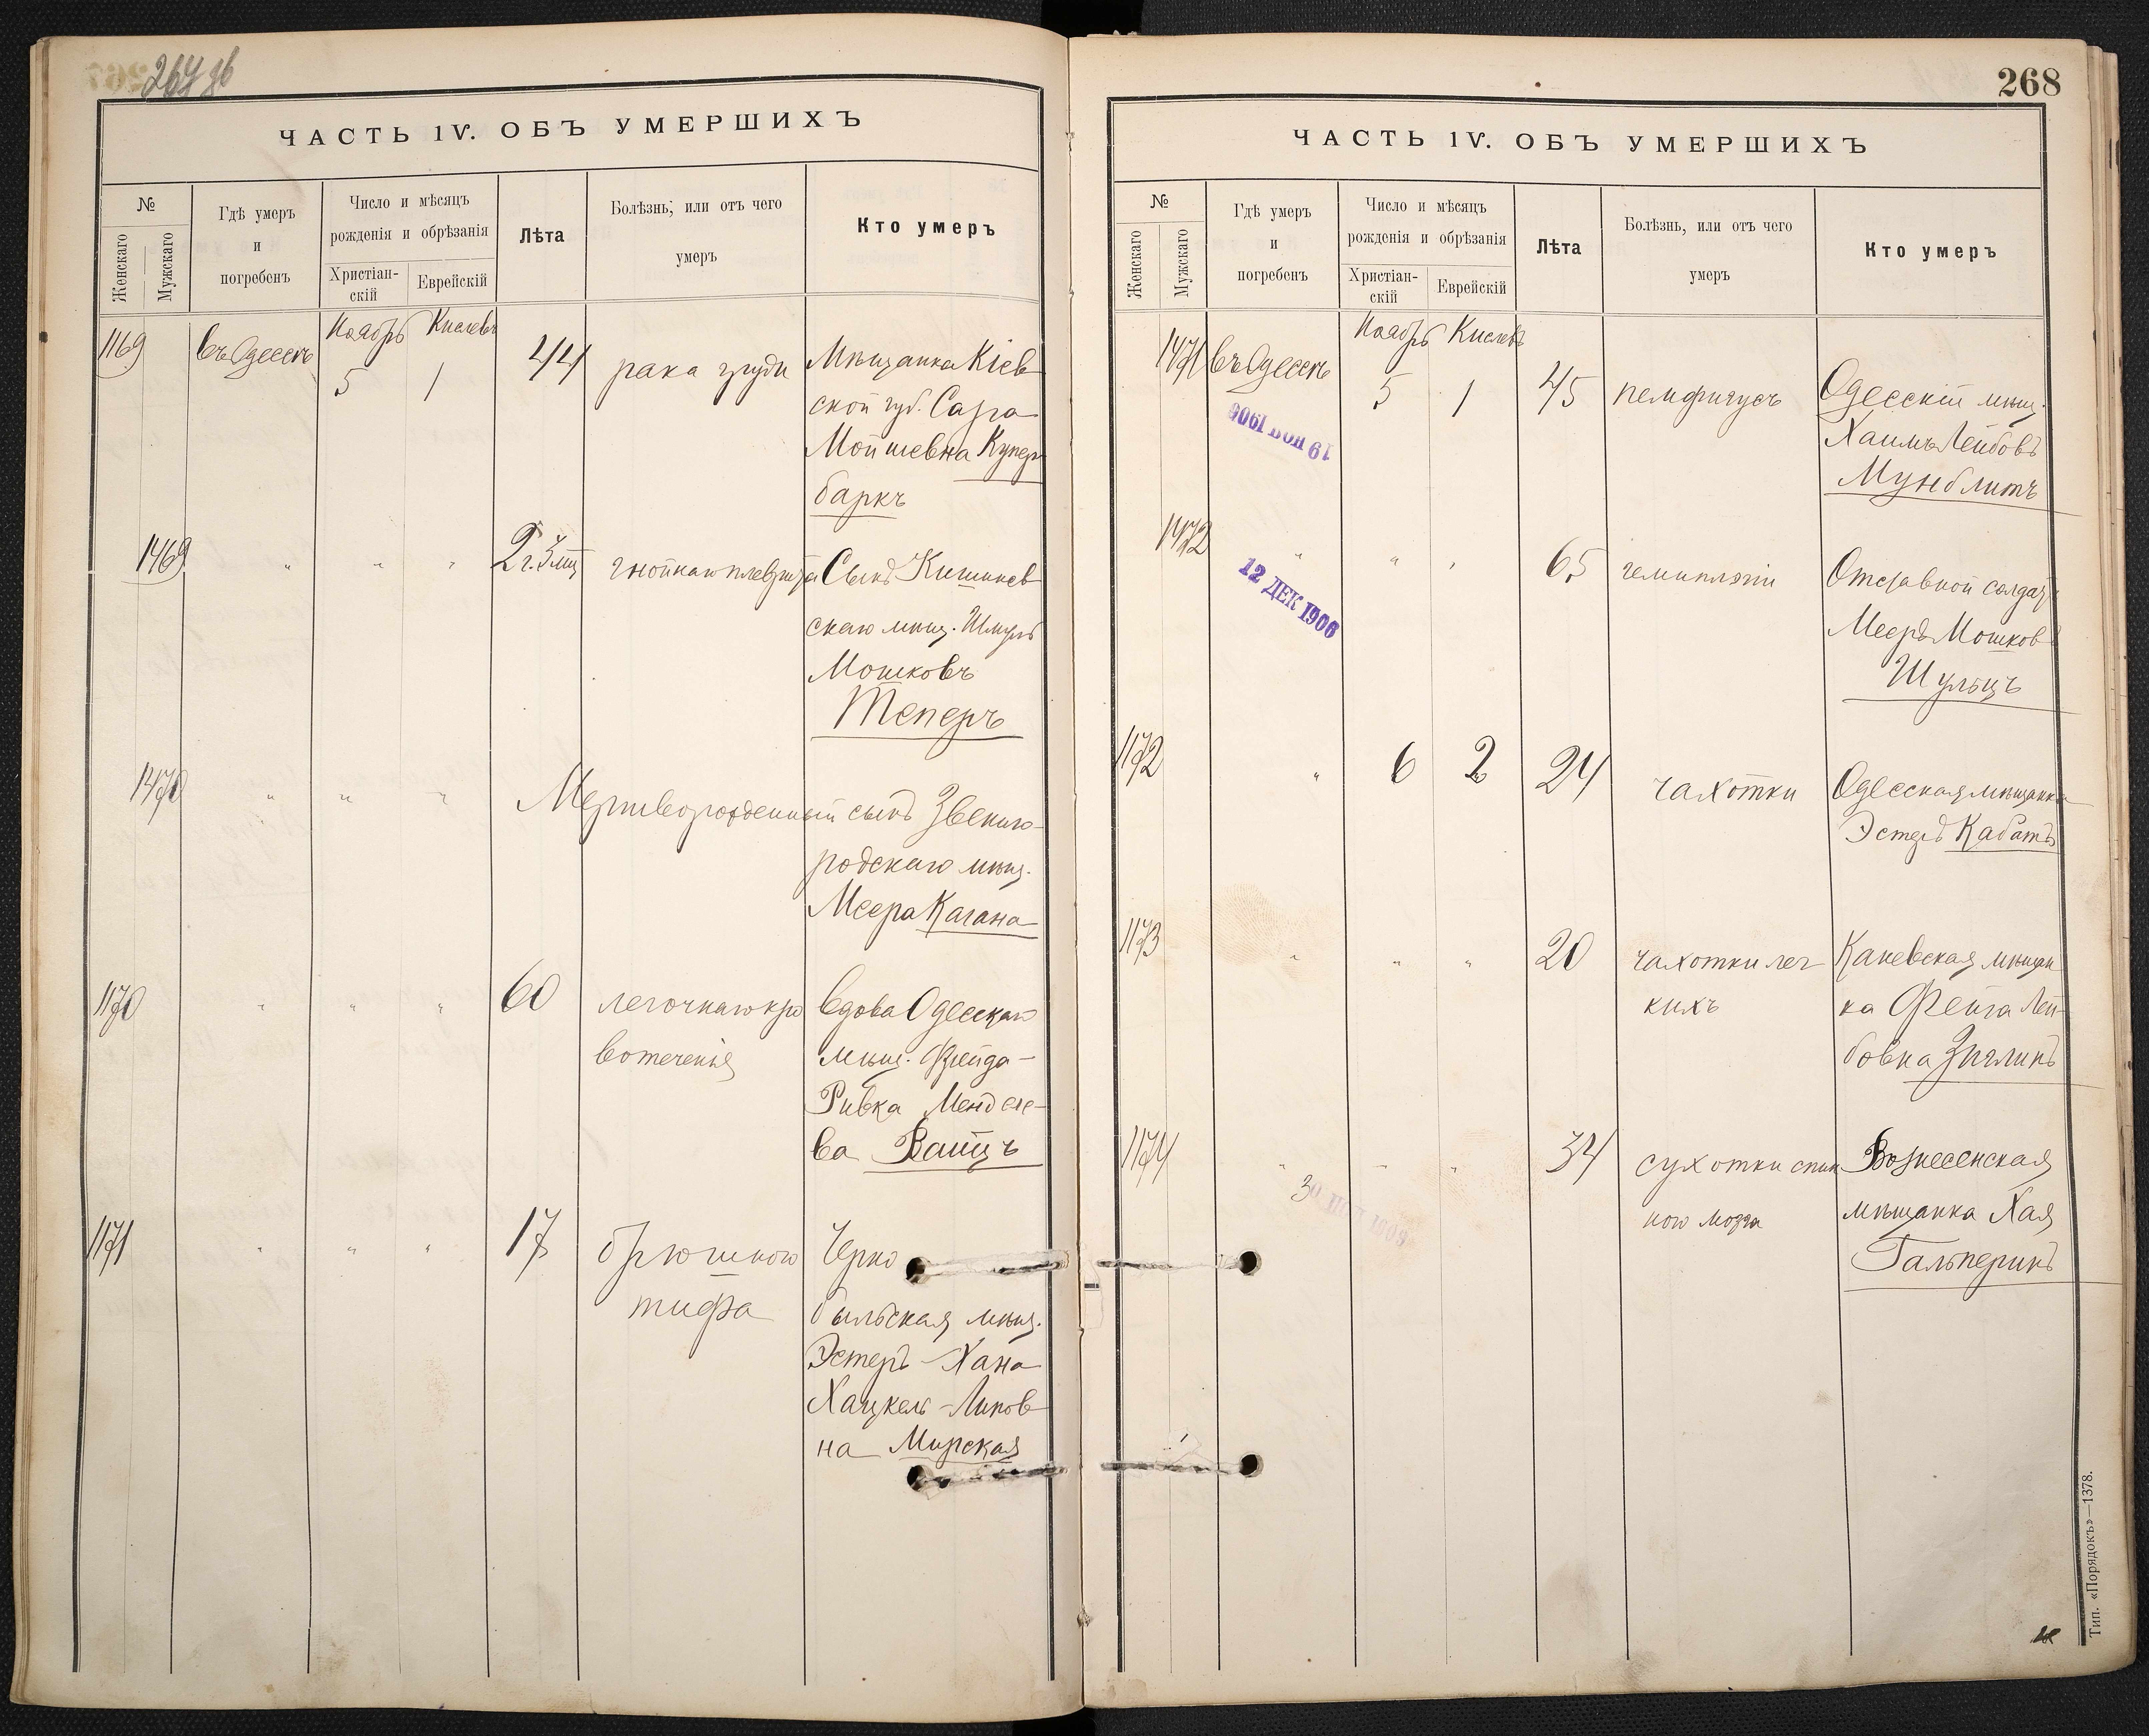 264 об
ЧАСТЬ IV. ОБЪ УМЕРШИХЪ
№
Женскаго
Мужскаго
Гдѣ умеръ
и
погребенъ
Число и мѣсяцъ
рожденія и обрѣзанія
Христіан-
скій
Еврейскій
Лѣта
Болѣзнь; или отъ чего
умеръ
Кто умеръ
1169
въ Одессѣ
Ноябрь
5
Кислевъ
1
44
рака груди
Мѣщанка Кіев
ской губ. Сара
Мойшевна Купер
баркъ
1469
" " "
2 г. 3 мц
гнойнаго плеврита
Сынъ Кишинев
скаго мѣщ. Шмуль
Мошковъ
Теперъ
1470
" " "
Мертворожденный сынъ Звениго-
родскаго мѣщ.
Меера Кагана
1170
" " "
60
легочнаго кро
вотеченія
Вдова Одесскаго
мѣщ. Фрейда-
Ривка Менделе-
ва Вайцъ
1171
" " "
17
брюшного
тифа
Черно
быльская мѣщ.
Эстеръ-Хана
Хацкель-Липов
на Мирская
268
ЧАСТЬ IV. ОБЪ УМЕРШИХЪ
№
Женскаго
Мужскаго
Гдѣ умеръ
и
погребенъ
Число и мѣсяцъ
рожденія и обрѣзанія
Христіан-
скій
Еврейскій
Лѣта
Болѣзнь, или отъ чего
умеръ
Кто умеръ
1471
въ Одессѣ
19 НОЯ 1906
Ноябрь
5
Кислевъ
1
45
пемфигусъ
Одесскій мѣщ.
Хаимъ Лейбовъ
Мунблитъ
1472
" " "
12 ДЕК 1906
65
гемиплэгіи
Отставной солдатъ
Мееръ Мошковъ
Шульцъ
1172
"
6
2
24
чахотки
Одесская мѣщанка
Эстеръ Кабатъ
1173
" " "
20
чахотки лег
кихъ
Каневская мѣщан
ка Фейга Лей-
бовна Зиглинъ
1174
" " "
34
сухотки спин
ного мозга
Вознесенская
мѣщанка Хая
Гальперинъ
Тип. «Порядокъ»—1378.